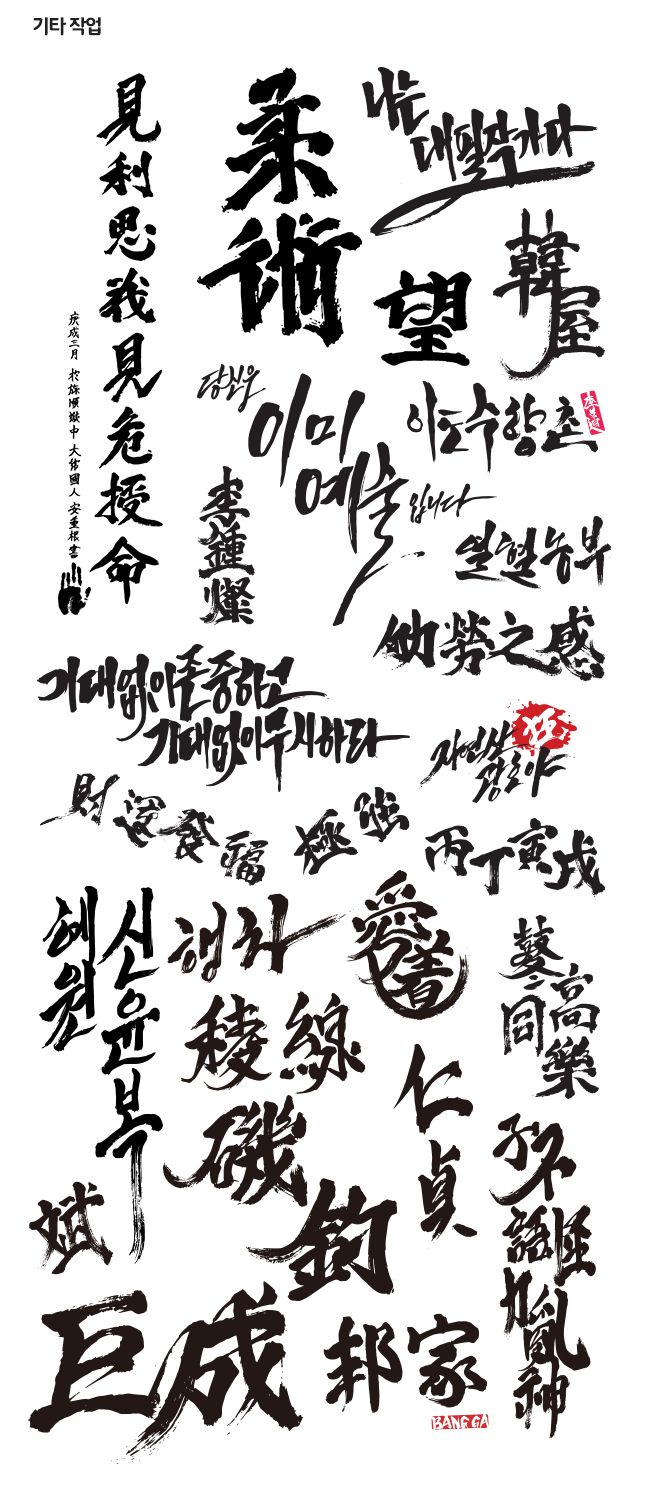 기타 작업
見利思義見危授命
庚戌三月 於旅順獄中 大韓國人 安重根書
柔術
나는
대필작가다
望
韓屋
당신은
이미
예술
입니다
이도수향촌
李鍾燦
열혈농부
劬勞之感
기대없이존중하고
기대없이무시하라
자연산
광어야
狂
財運發福
極強
丙丁寅戌
혜원
신윤복
행차
愛着
稜線
藝同高樂
仁貞
磯釣
斌
子不語怪力亂神
巨成
邦家
BANG GA